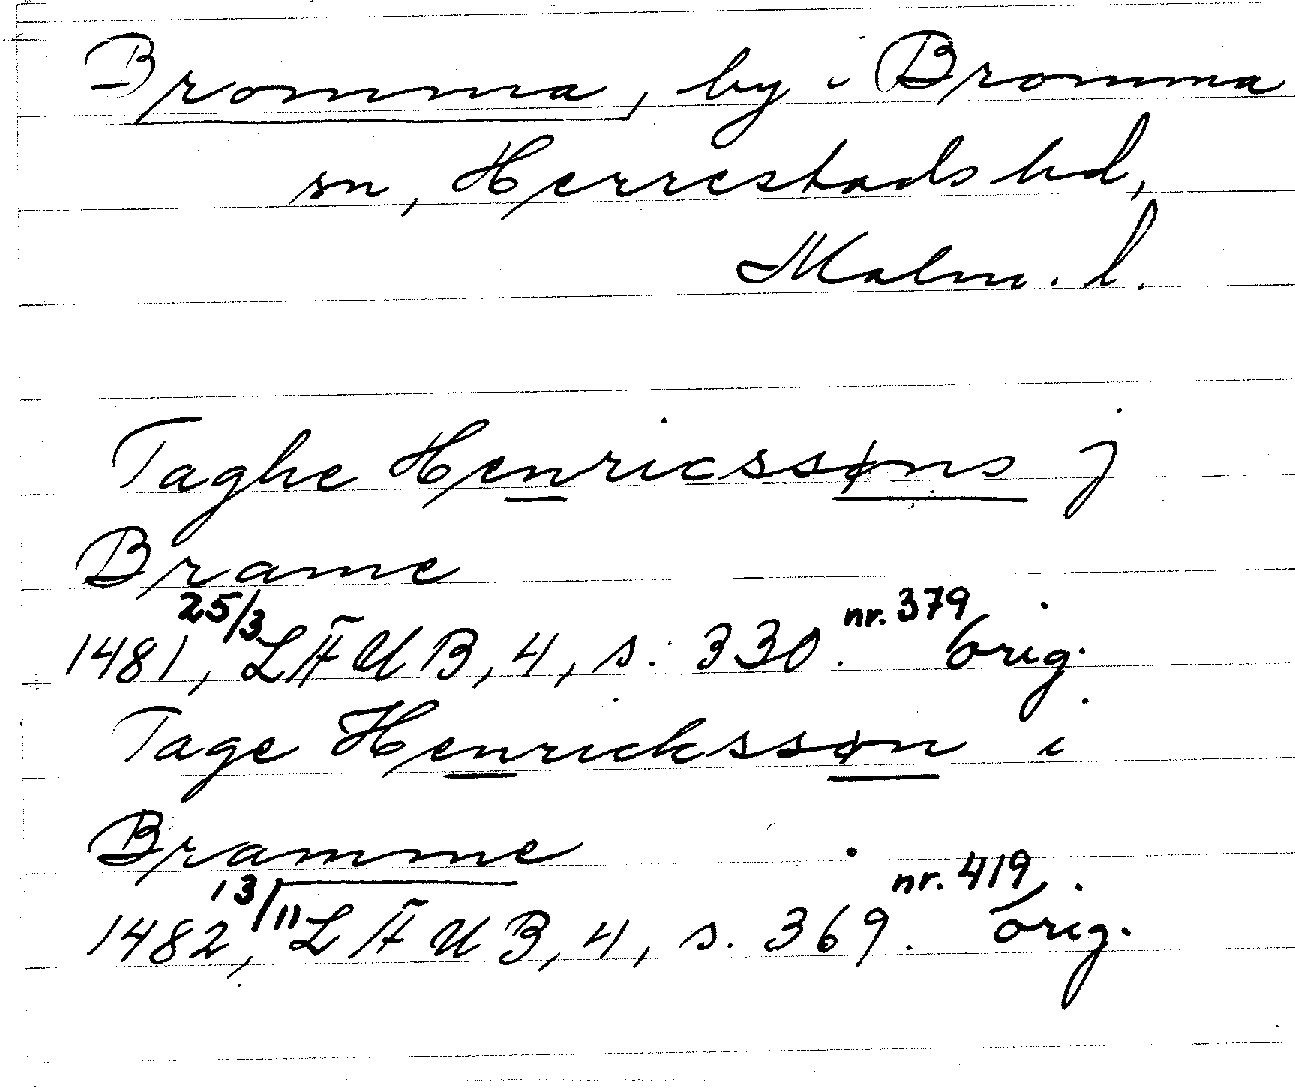 Bromma, by i Bromma
sn, Herrestads hd,
Malm. l.
Taghe Henricssøns j
Brame
1481, 25/3 LÄUB, 4, s. 330. nr. 379 orig.
Tage Henrickssøn i
Bramme
1482, 13/11 LÄUB, 4, s. 369. nr. 419 orig.